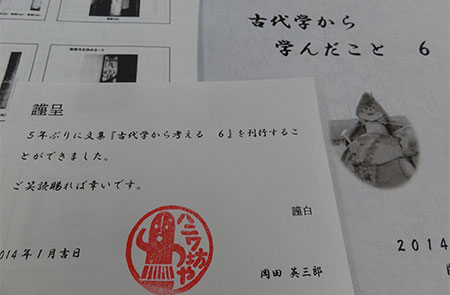 古代学から
学んだこと 6
2014
謹呈
5年ぶりに文集『古代学から考える 6』を刊行するこ
とができました。
ご笑読賜れば幸いです。
謹白
014年1月吉日
岡田 英三郎
ハニワ坊や